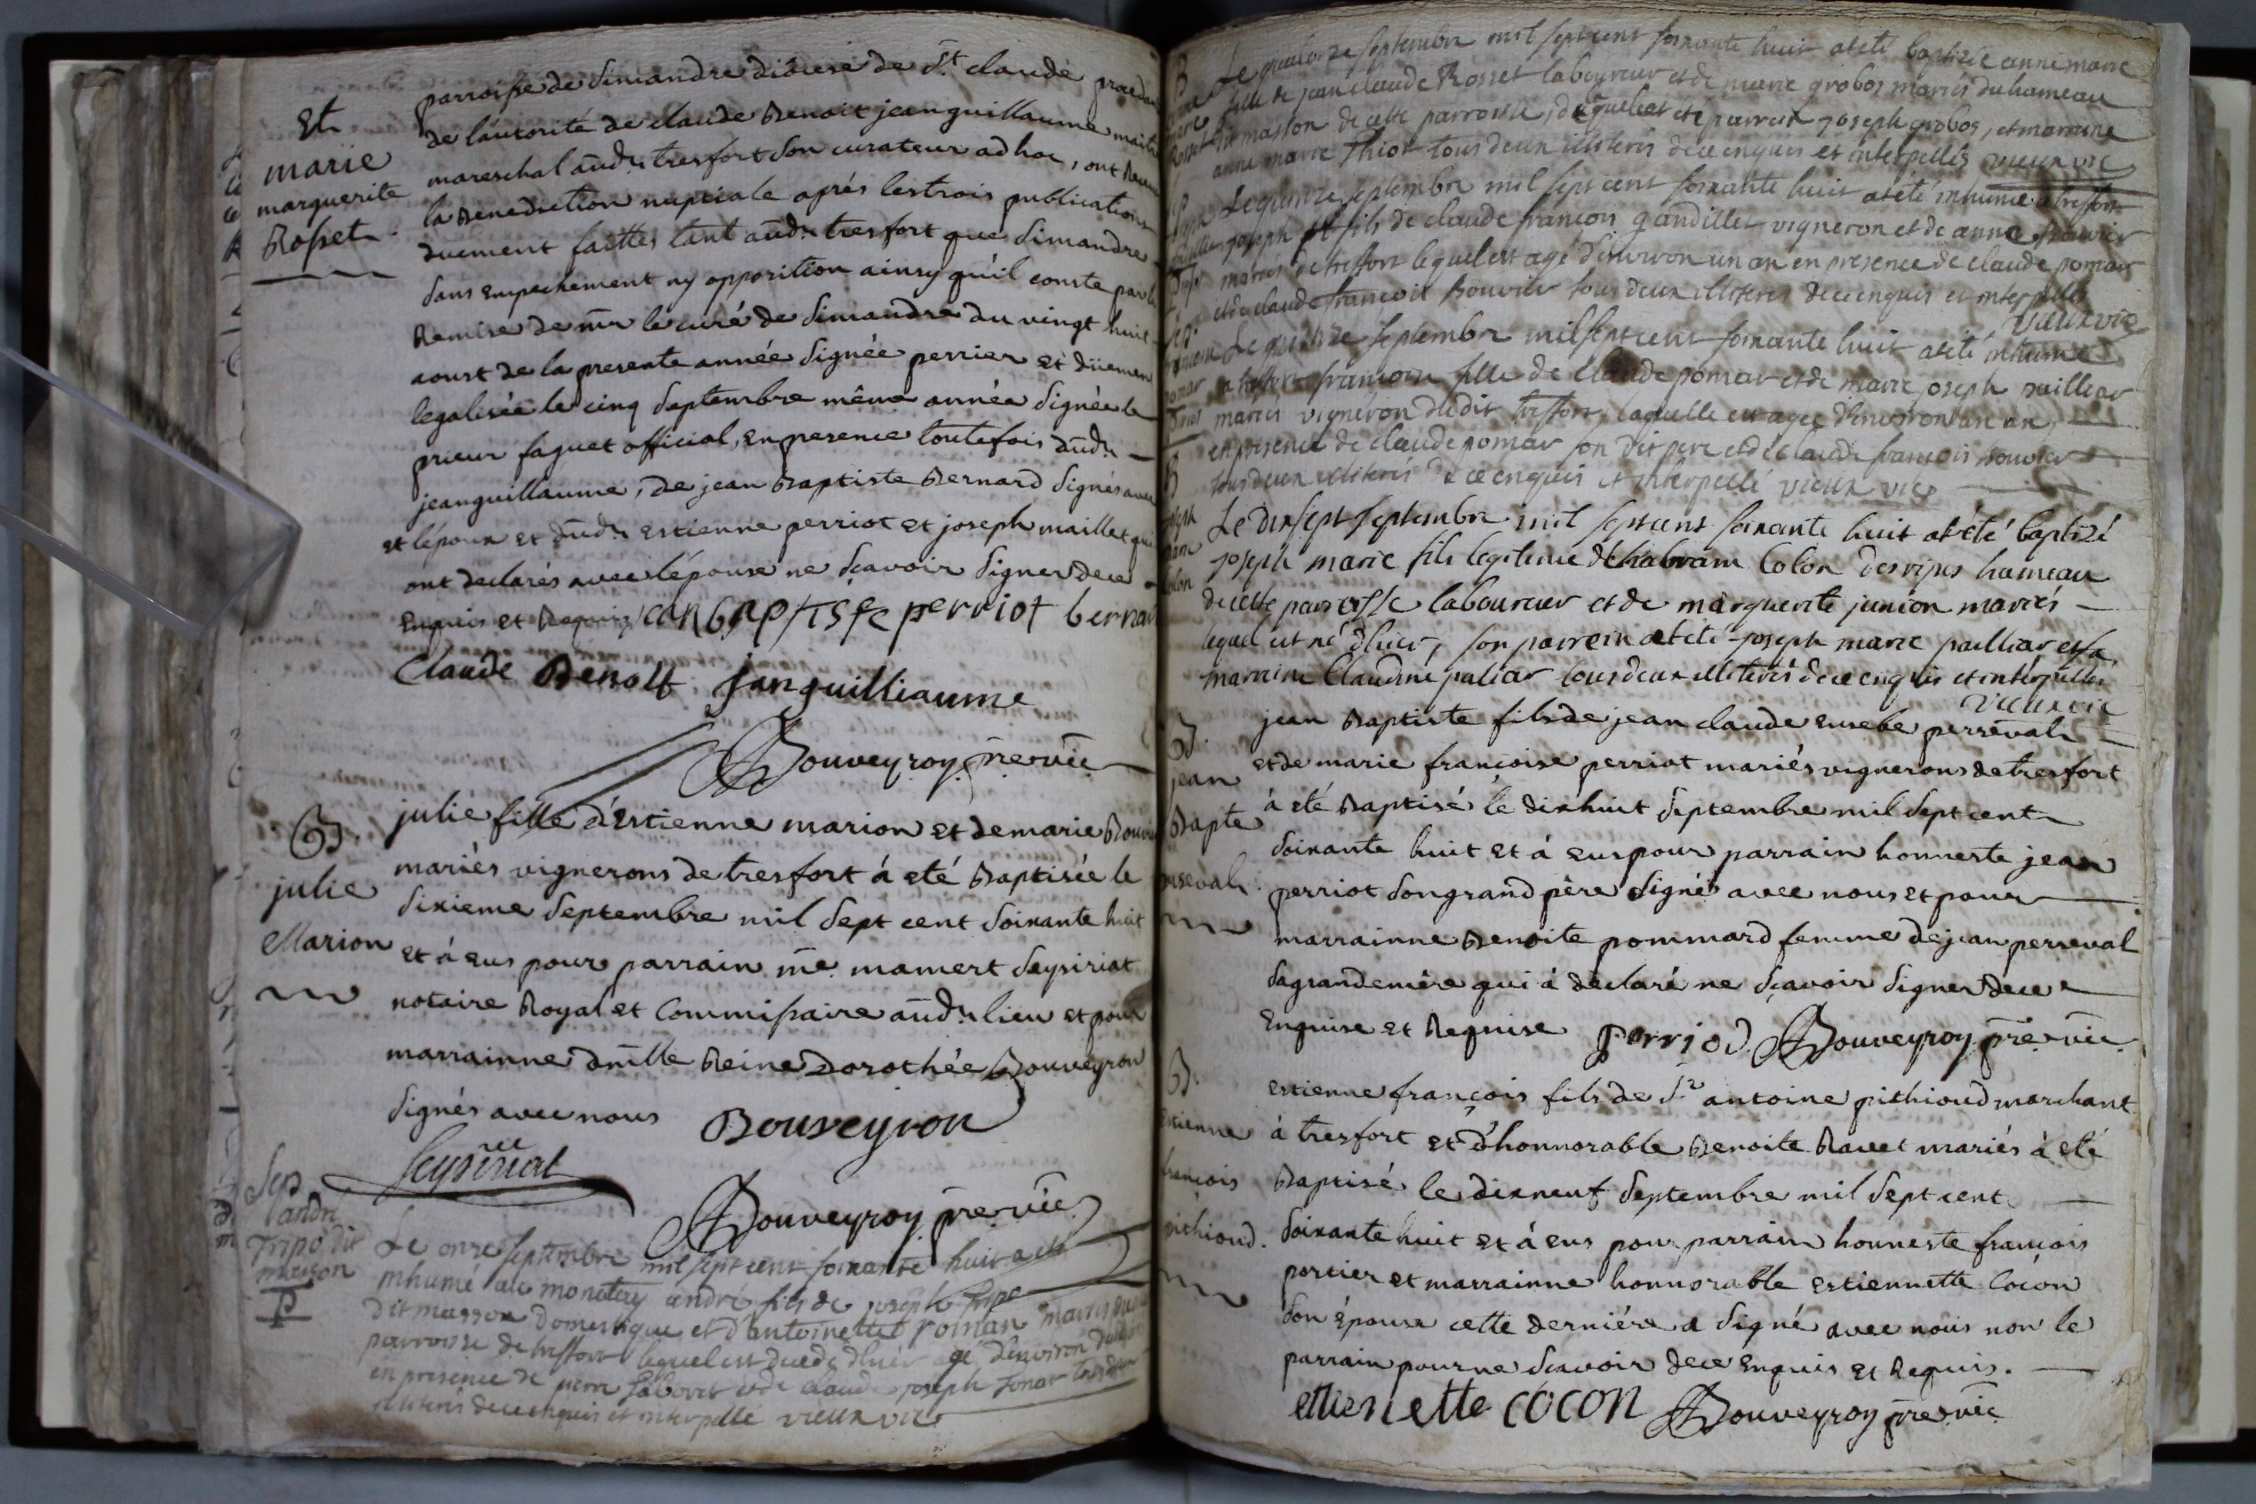 et
marie
marguerite
Rosset
parroisse de Simandre diocese de St. claude
de l'autorité de claude Benoit jeanguillaume maitre
mareschal aud. tresfort son curateur ad hoc, ont
la Benediction nuptiale aprés les trois publications
duement faittes tant aud. tresfort que Simandre
sans empechement ny opposition ainsy qu'il conste par la
Remise de mr le curé de Simandre du vingt huit
aoust de la presente année signée perrier et düement
legalisée le cinq septembre même année signée le
prieur faguet official, en presence toutefois dud.
jeanguillaume, de jean Baptiste Bernard signés avec
et l'époux et dud. estienne perriot et joseph maillet qui
ont declarés avec l'épouse ne sçavoir signer de ce
enquis et Requis jean baptiste perriot bernard
Claude Benoit janguilliaume
Bouveyroy pre vic
B.
julie
Marion
julie fille d'Estienne marion et de marie
mariés vignerons de tresfort á eté Baptisée le
sixieme septembre mil sept cent soixante huit
et á eus pour parrain me. mamert seysiriat
notaire Royal et commissaire aud. lieu et pour
marrainne dmlle Reine Dorothée Bouveyron
signés avec nous Bouveyron
Seysiriat
Bouveyroy pre vic
Sep
andre
Tripo dit
masson
P
Le onze septembre mil sept cent soixante huit a eté
inhumé au monetay andré fils de joseph Tripo
dit masson domestique et d'antoinette mariés
parroisse de tresfort lequel est decedé d'hier agé d'environ
en presence de pierre et de claude joseph
illiterés de ce enquis et interpellé vieux vic
Le quatorze septembre mil sept cent soixante huit a eté baptizée anne marie
fille de jean claude Rosset laboureur et de marie grobos mariés du hameau
de masson de cette parroisse, de parrain joseph grobos, et marraine
anne marie Thiot tous deux illiterés de ce enquis et interpellés vieux vic
Le quinze septembre mil sept cent soixante huit a eté inhumé a tresfort
joseph fils de claude francois gandillet vigneron et de anne
mariés de tresfort lequel est agé d'environ un an en presence de claude pomar
et de claude francois Bouvier tous deux illiterés de ce enquis et interpellés
vieux vic
Le quinze septembre mil sept cent soixante huit a eté inhumé
a tresfort francoise fille de claude pomar et de marie joseph
mariés vigneron dudit tresfort, laquelle est agée d'environ un an
en presence de claude pomar son dit pere et de claude francois bouvier
tous deux illiterés de ce enquis et interpellé vieux vic
Le dix sept septembre mil sept cent soixante huit at été baptizé
joseph marie fils legitime d'habram Colon des ripes hameau
de cette parroisse laboureur et de marguerite junion mariés
lequel est né d'hier, son parrein at eté joseph marie pailliar et sa
marraine Claudine paliar tous deux illiterés de ce enquis et interpellés
vieux vic
B.
jean
Bapte
perseval
jean Baptiste fils de jean claude eusebe perseval
et de marie françoise perriot mariés vignerons de tresfort
à eté Baptisé le dixhuit septembre mil sept cent
soixante huit et á eus pour parrain honneste jean
perriot son grand pére signé avec nous et pour
marrainne Benoite pommard femme de jean perseval
sa grandemére qui á declaré ne sçavoir signer de ce
enquise et Requise perriod Bouveyroy pre vic
B.
estienne
françois
pithioud.
estienne françois fils de Sr antoine pithioud marchant
à tresfort et d'honnorable Benoite Ravet mariés à eté
Baptisé le dixneuf septembre mil sept cent
soixante huit et á eus pour parrain honneste francois
portier et marrainne honnorable estiennette Cocon
son épouse cette derniére a signé avec nous non le
parrain pour ne sçavoir de ce enquis et Requis.
ettienette cocon Bouveyroy pre vic